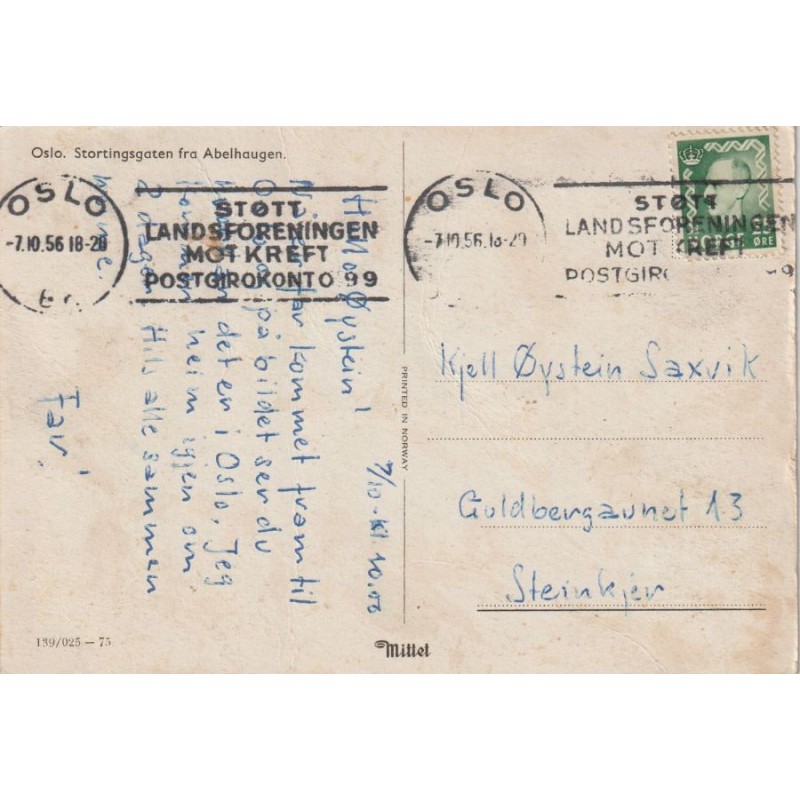 Oslo. Stortingsgaten fra Abelhaugen.
OSLO
-7.10.56 18-20
STØTT
LANDSFORENINGEN
MOT KREFT
POSTGIROKONTO 99
OSLO
-7.10.56.18-20
STØTT
LANDSFORENINGEN
MOT KREFT
POSTGIROKONTO 99
ØRE
7/10-kl 10.00
Hallo Øystein!
Nå er far kommet fram til
Oslo, på bildet ser du
det er i Oslo. Jeg
kommer heim igjen om
2 dager. Hils alle sammen
hjemme.
Far.
PRINTED IN NORWAY
Kjell Øystein Saxvik
Guldbergaunet 13
Steinkjer
139/025 — 75
Mittet